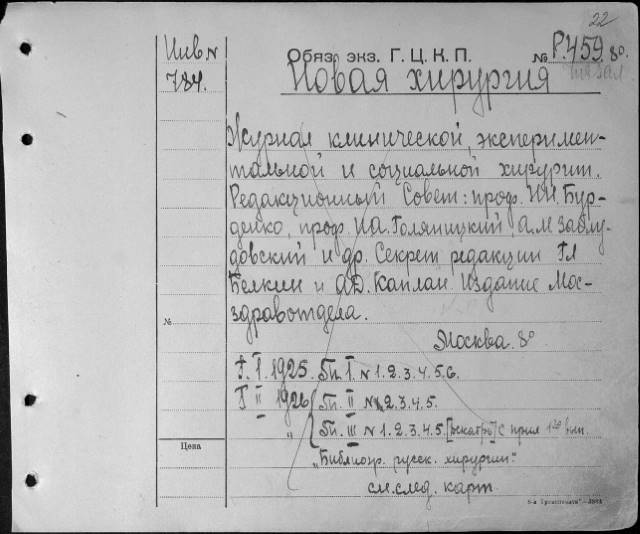 22
Инв N
784.
Обяз. экз. Г. Ц. К. П. № Р.459 8°.
Чит Зал
Новая хирургия
Журнал клинической, эксперимен-
тальной и социальной хирургии.
Редакционный Совет: проф. Н.Н. Бур-
денко, проф. И.А. Голяницкий, А.М. Заблу-
довский и др. Секрет. редакции Гл
Белкин и А.Д. Каплан. Издание Мос-
здравотдела.
№
Москва. 8°
Г. I. 1925. Тп. I. N 1. 2. 3. 4. 5. 6.
Г II 1926 Тп. II N 1. 2. 3. 4. 5.
" Тп. III N 1. 2. 3. 4. 5. с прил 1го вып.
Цена
„Библиогр. русск. хирургии."
см. след. карт